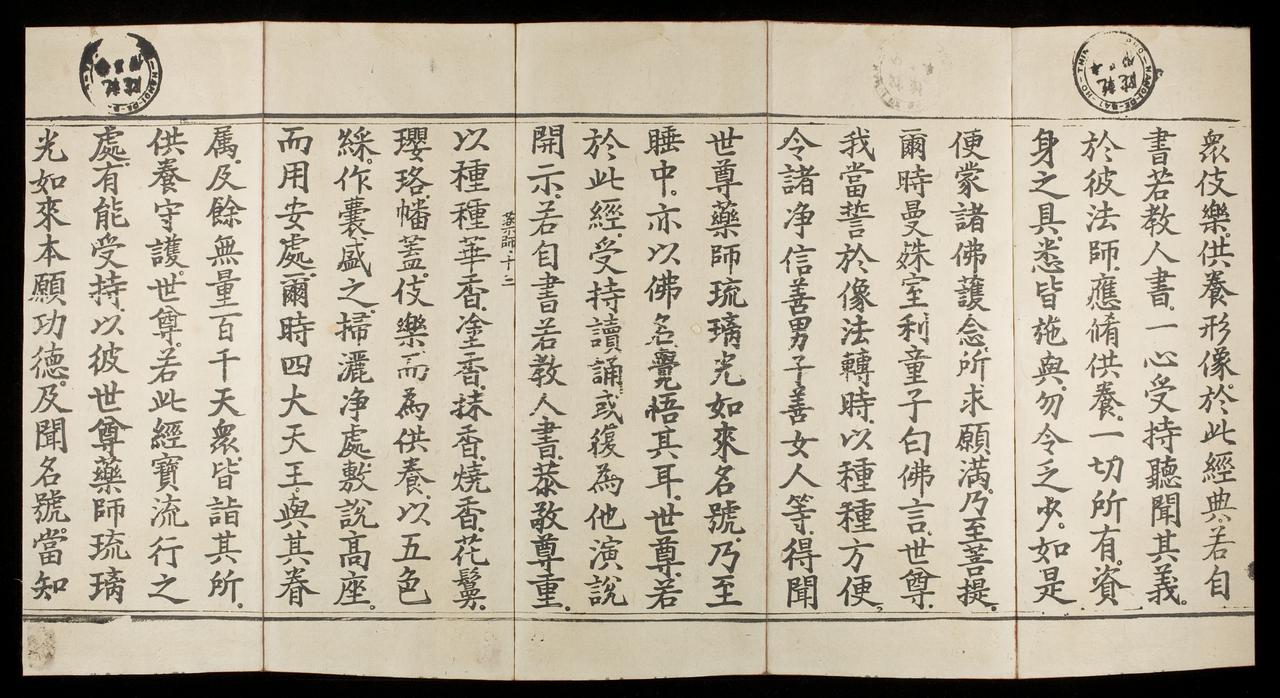 衆伎樂。供養形像。於此經典。若自
書若教人書。一心受持聽聞其義。
於彼法師。應脩供養。一切所有。資
身之具悉皆施與。勿令乏少。如是
便蒙諸佛護念所求願滿。乃至菩提。
爾時曼殊室利童子白佛言。世尊。
我當誓於像法轉時。以種種方便。
令諸净信善男子善女人等。得聞
世尊藥師琉璃光如來名號。乃至
睡中。亦以佛名覺悟其耳。世尊。若
於此經。受持讀誦。或復為他演說
開示。若自書若教人書。恭敬尊重。
藥師 十二
以種種華香。塗香。抹香。燒香。花鬘。
瓔珞幡蓋。伎樂。而為供養。以五色
綵。作囊盛之。掃灑净處敷說高座。
而用安處。爾時四大天王。與其眷
属。及餘無量百千天衆。皆詣其所。
供養守護。世尊。若此經寶流行之
處。有能受持。以彼世尊藥師琉璃
光如來本願功德。及聞名號。當知